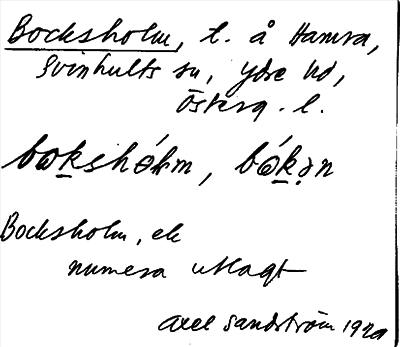 Bocksholm, t. å Hamra,
Svinhults sn, Ydre hd,
Österg. l.
bokshólm, bókən
Bocksholm, ek
numera utlagt
Axel Sandström 1920